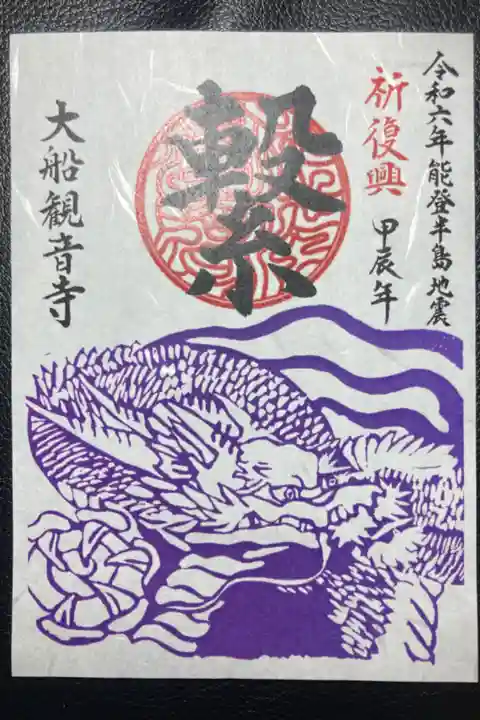 令和六年 能登半島地震
祈復興
甲辰年
繋
大船観音寺